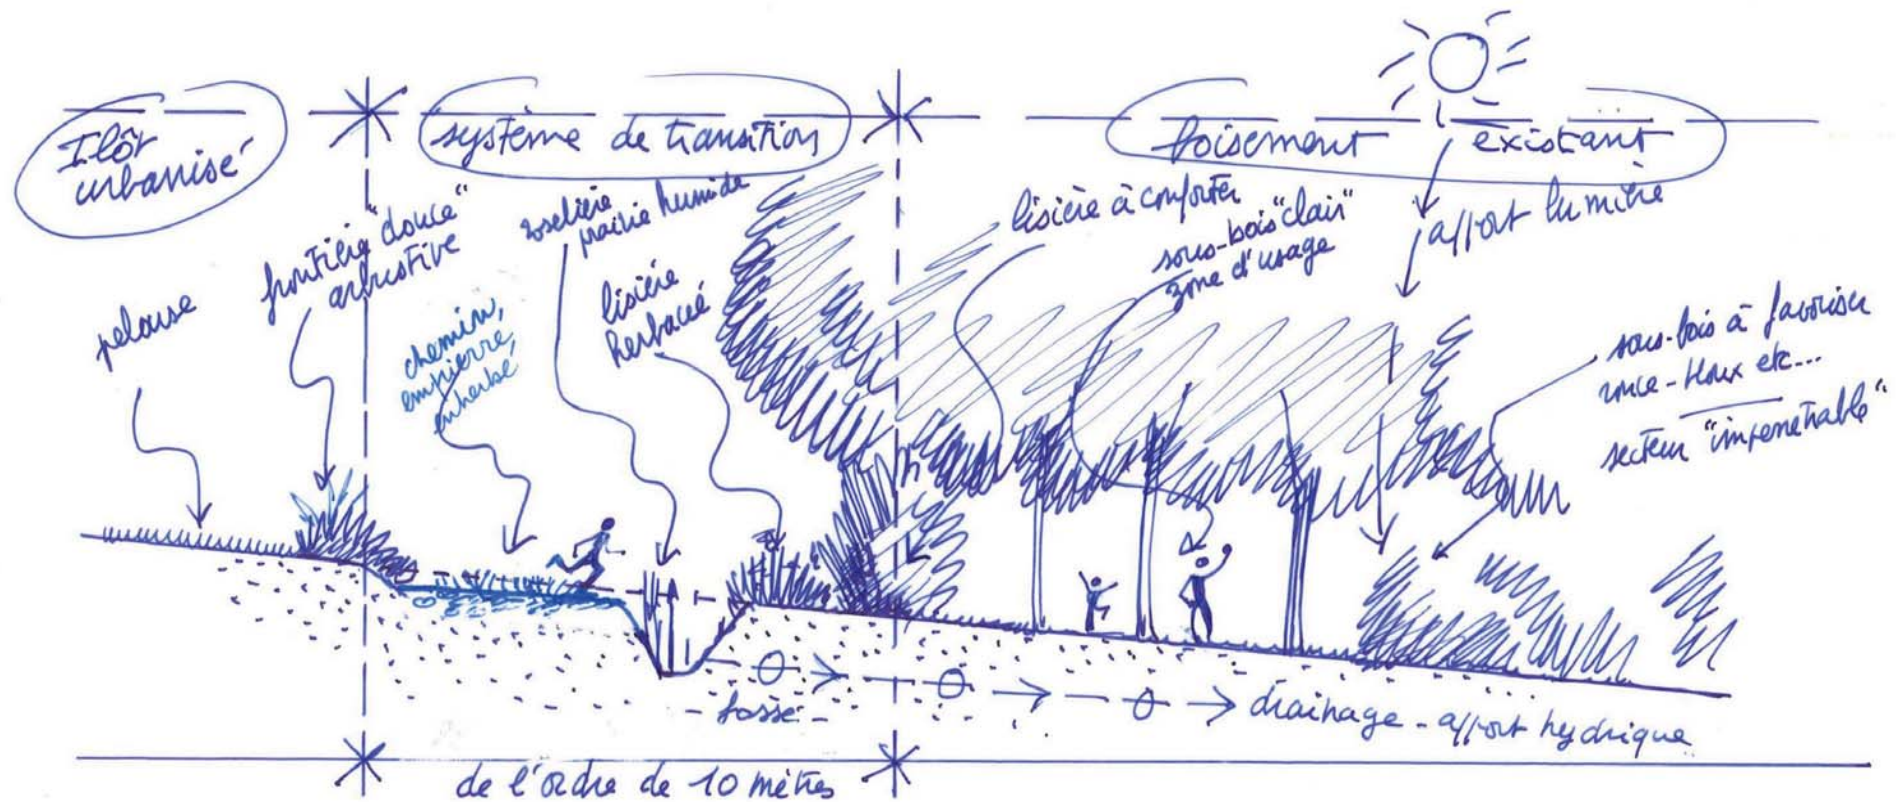 Ilôt
urbanisé
système de transition
boisement existant
pelouse
frontière "douce"
arbustive
chemin,
empierré,
enherbé
roselière
prairie humide
lisière
herbacée
lisière à conforter
sous-bois "clair"
zone d'usage
apport lumière
sous-bois à favoriser
ronce - houx etc...
secteur "impenetrable"
- fossé -
drainage - apport hydrique
de l'ordre de 10 mètres